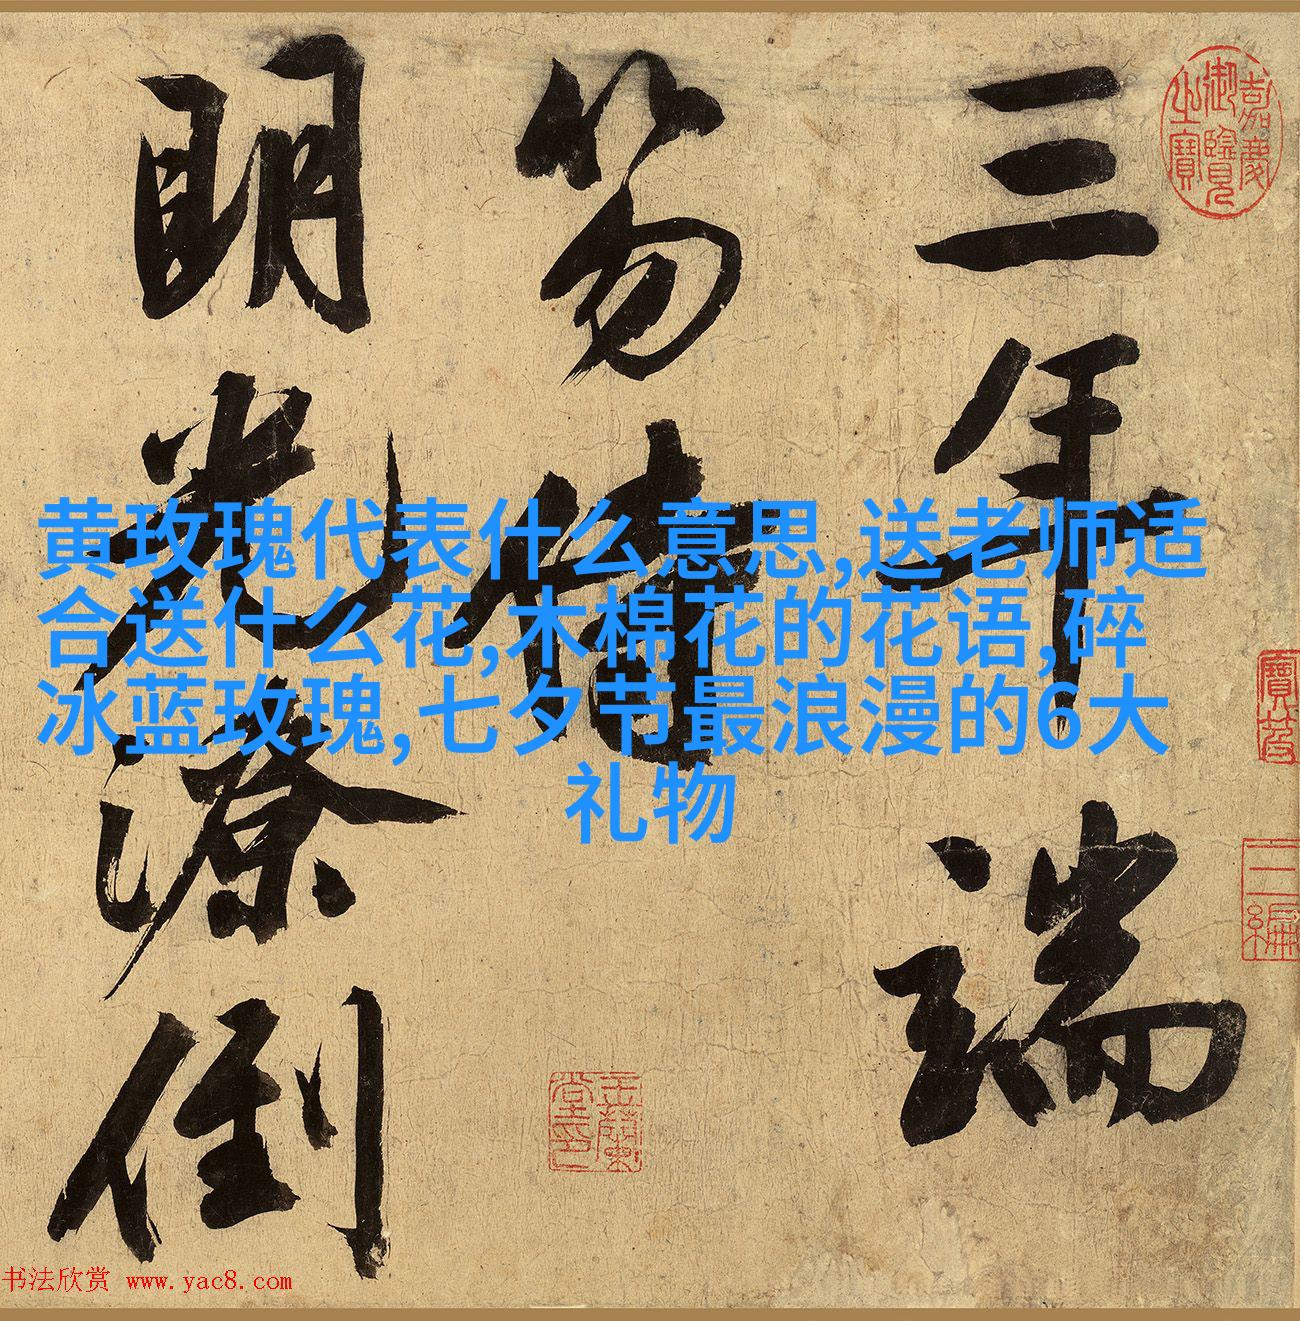 三年端
笏侍
明光潦倒
黄玫瑰代表什么意思,送老师适
合送什么花,木棉花的花语,碎
冰蓝玫瑰, 七夕节最浪漫的6大
礼物
嘉慶
御覽
之寶
寶笈
三編
书法欣赏 www.yac8.com